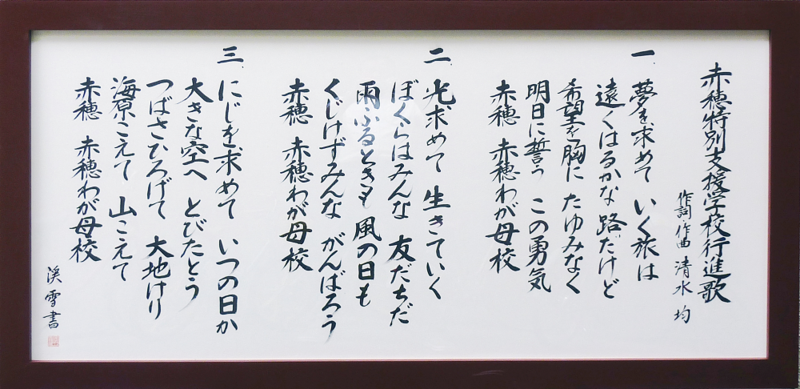 赤穂特別支援学校行進歌
作詞 作曲 清水 均
一 夢を求めて いく旅は
遠くはるかな 路だけど
希望を胸に たゆみなく
明日に誓う この勇気
赤穂 赤穂わが母校
二 光求めて 生きていく
ぼくらはみんな 友だちだ
雨ふるときも 風の日も
くじけずみんな がんばろう
赤穂 赤穂わが母校
三 にじを求めて いつの日か
大きな空へ とびたとう
つばさひろげて 大地けり
海原こえて 山こえて
赤穂 赤穂わが母校
渓雪書